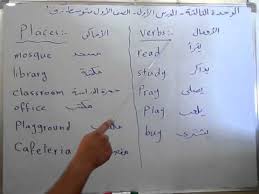 الوحدة الثالثة - الدرس الأول - الصف الأول متوسط - ف١
Places:- الأماكن
mosque مسجد
library مكتبة
classroom حجرة الدراسة
office مكتب
Playground ملعب
Cafeteria
verbs:- الأفعال
read يقرأ
study يذاكر
Pray يصلي
Play يلعب
buy يشتري